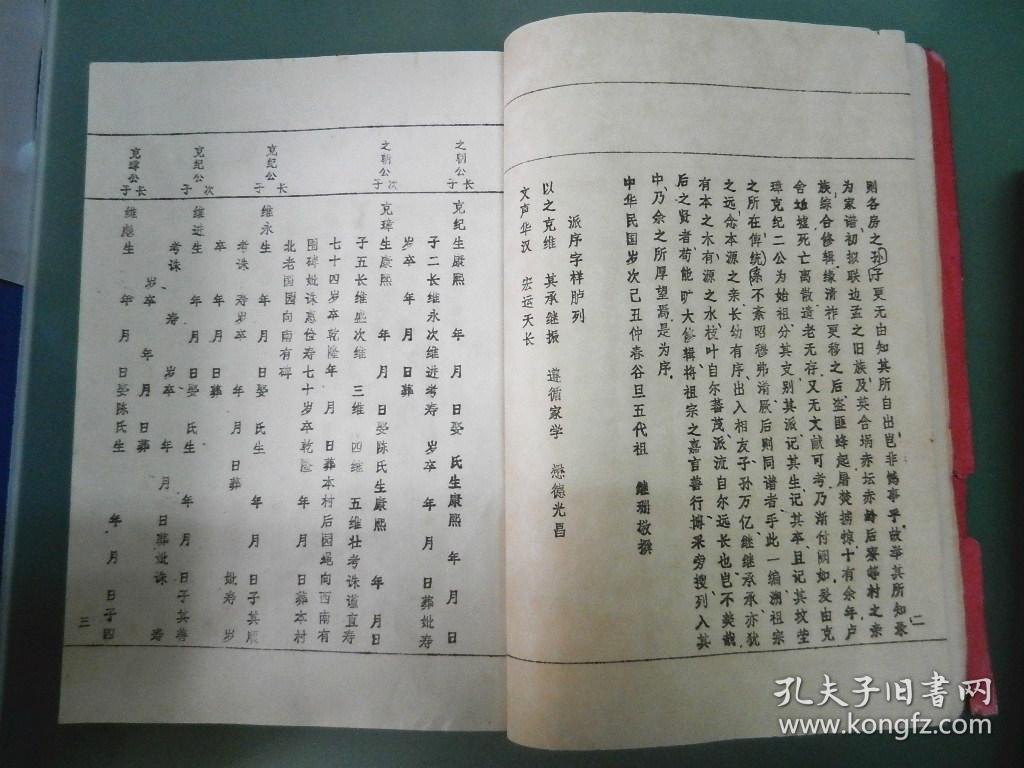 则各房之孙子更无由知其所自出岂非憾事乎故举其所知录
为家谱初拟联边孟之旧族及英合埚赤坛赤龄后寮等村之亲
族综合修辑缘清祚更移之后盗匪蜂起屠焚掳惊十有余年卢
舍坵墟死亡离散遗老无存又无文献可考乃渐付阙如爰由克
璋克纪二公为始祖分其支别其派记其生记其卒且记其坟茔
之所在俾统系不紊昭穆弗淆厥后则同谱者手此一编溯祖宗
之远念本源之亲长幼有序出入相友子孙万亿继继承承亦犹
有本之木有源之水枝叶自尔蕃茂派流自尔远长也岂不美哉
后之贤者苟能旷大修辑将祖宗之嘉言善行博采旁搜列入其
中乃余之所厚望焉是为序
中华民国岁次己丑仲春谷旦五代祖 继珊敬撰
派序字样胪列
以之克维 其承继振 遵循家学 懋德光昌
文声华汉 宏运天长
二
之朝公长子
克纪生康熙 年 月 日娶 氏生康熙 年 月 日
子二长维永次维进考寿 岁卒 年 月 日葬妣寿
岁卒 年 月 日葬
之朝公次子
克璋生康熙 年 月 日娶陈氏生康熙 年 月 日
子五长维盛次维 三维 四维 五维壮考诔谥直寿
七十四岁卒乾隆年 月 日葬本村后园 向西南有
围碑妣诔惠俭寿七十岁卒乾隆 年 月 日葬本村
北老园园向南有碑
克纪公长子
维永生 年 月 日娶 氏生 年 月 日子其顺
考诔 寿 岁卒 年 月 日葬 妣寿 岁
卒 年 月 日葬
克纪公次子
维进生 年 月 日娶 氏生 年 月 日子其寿
考诔 寿 岁卒 年 月 日葬妣诔 寿
岁卒 年 月 日葬
克璋公长子
维 生 年 月 日娶陈氏生 年 月 日子四
三
孔夫子旧书网
www.kongfz.com